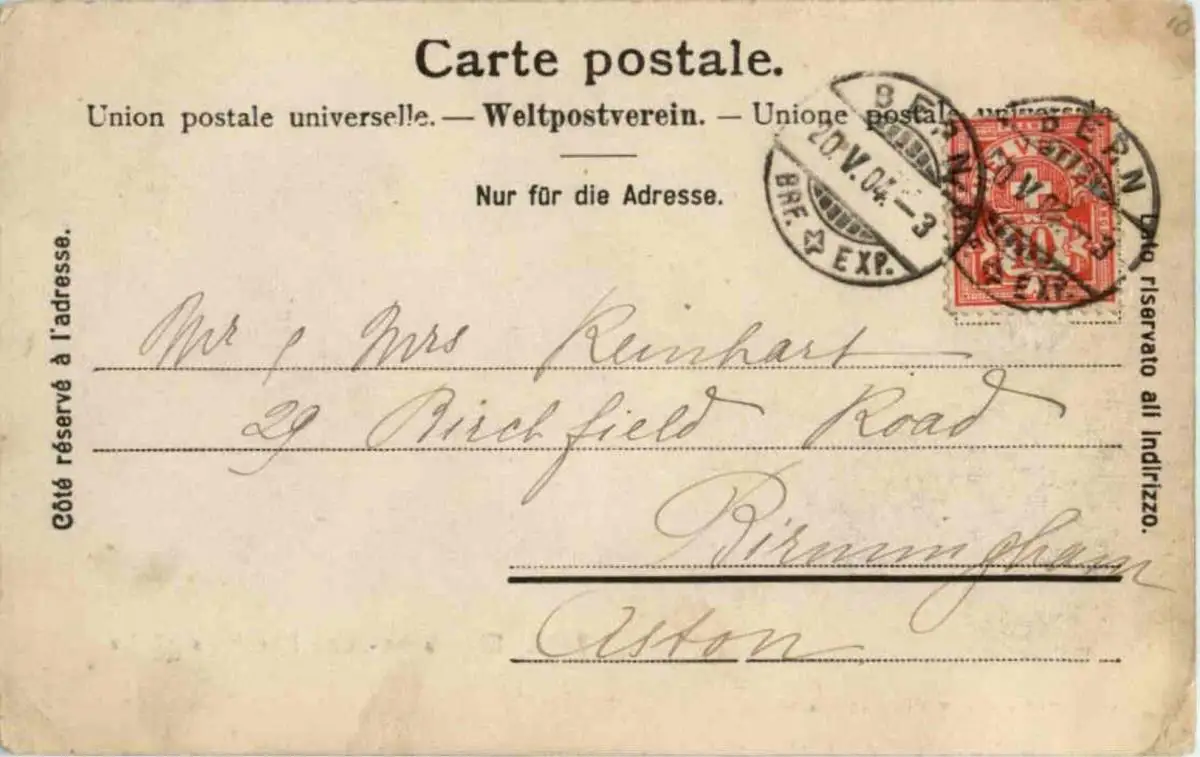 10
Carte postale.
Union postale universelle. — Weltpostverein. — Unione postale universale
Nur für die Adresse.
Côté réservé à l'adresse.
Lato riservato all indirizzo.
BERN
20.V.04.–3
BRF. EXP.
BERN
V.04.–3
BRF. EXP.
10
Mr & Mrs Reinhart
29 Birchfield Road
Birmingham
Aston